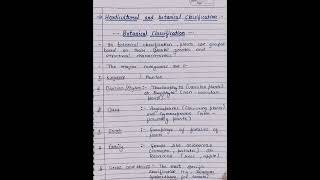 Horticultural and botanical Classification
Botanical Classification
In botanical classification, plants are grouped
based on their genetic and
structural characteristics.
The major categories are :-
Kingdom :- Plantae
Division/Phylum :- Tracheophyta (vascular plants)
or Bryophyta (non-
vascular plants)
Class :- Angiosperms (flowering plants)
and Gymnosperms (non-
flowering plants)
Order :- Groupings of families of
plants
Family :- Groups like solanaceae
(tomato, potato) or
Rosaceae (rose, apple)
Genus and Species :- The most specific
classification